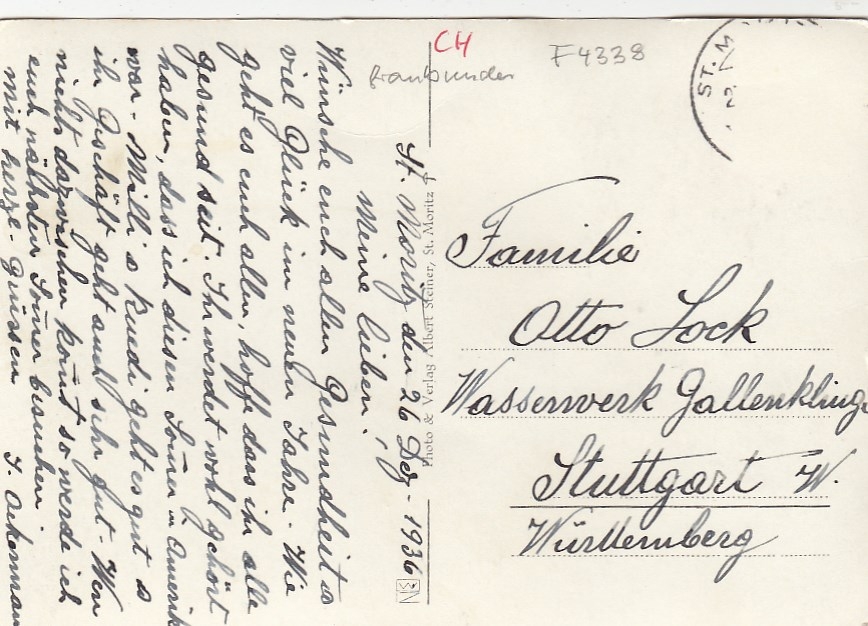 CH
F4338
Graubünden
ST. M
St. Moritz den 26 Dez - 1936
Meine lieben!
Wünsche euch allen Gesundheit &
viel Glück im neuen Jahre. Wie
geht es euch allen, hoffe dass ihr alle
gesund seit. Ihr werdet wohl gehört
haben, dass ich diesen Somer in Amerik
war - Milli & Ruedi geht es gut &
ihr Geschäft geht auch sehr gut - Wen
nichts dazwischen komt so werde ich
euch nächsten Somer besuchen.
mit herzl. Grüssen J. Ackermann
Photo & Verlag Albert Steiner, St. Moritz
Familie
Otto Lock
Wasserwerk Gallenkling
Stuttgart W.
Württemberg